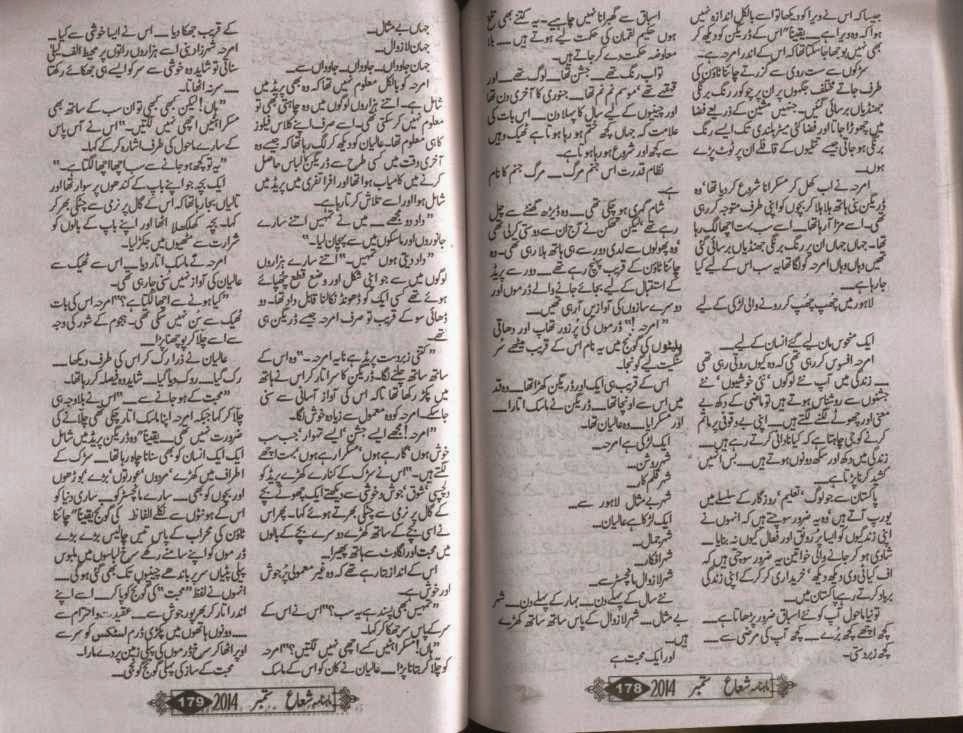 جیسا کہ اس نے ویرا کو دیکھا تو اسے بالکل اندازہ نہیں
ہوا کہ وہ ویرا ہے۔ یقیناً "اس کے ڈریگن کو دیکھ کر
بھی نہیں بوجھا جا سکتا تھا کہ اس کے اندر امرحہ ہے۔
سڑکوں سے ست روی سے گزرتے چائنا ٹاؤن کی
طرف جاتے مختلف جگہوں پر ان پر چوکور رنگ برنگی
جھنڈیاں برسائی گئیں۔ جنہیں مشین کے ذریعے فضا
میں چھوڑا جاتا اور فضا کئی میٹر بلندی تک ایسے رنگ
برنگی ہو جاتی جیسے تتلیوں کے قافلے ان پر ٹوٹ پڑے
ہوں۔
امرحہ نے اب کھل کر مسکرانا شروع کر دیا تھا' وہ
ڈریگن بنی ہاتھ ہلا ہلا کر بچوں کو اپنی طرف متوجہ کر رہی
تھی۔ اسے مزا آ رہا تھا۔ اسے سب بہت اچھا لگ رہا
تھا۔ جہاں جہاں ان پر رنگ برنگی جھنڈیاں برسائی گئی
تھیں وہاں وہاں امرحہ کو لگا تھا یہ سب اس کے لیے کیا
جا رہا ہے۔
لاہور میں چھپ چھپ کر رونے والی لڑکی کے لیے
ایک منحوس مان لیے گئے انسان کے لیے۔
امرحہ افسوس کر رہی تھی کہ وہ کیوں روتی رہی تھی
زندگی میں آپ نئے لوگوں' نئی خوشیوں' نئے
جشنوں سے روشناس ہوتے ہیں تو ماضی کے دکھ بے
معنی اور چھوٹے لگنے لگتے ہیں۔ اپنی بے وقوفی پر ماتم
کرنے کو جی چاہتا ہے کہ کیا نادانی کرتے رہے ہیں۔
زندگی میں دکھ اور سکھ دونوں ہوتے ہیں۔ بس انہیں
کشید کرنا پڑتا ہے۔
پاکستان سے جو لوگ' تعلیم' روزگار کے سلسلے میں
یورپ آتے ہیں' وہ یہ ضرور سوچتے ہیں کہ انہوں نے
اپنی زندگیوں کو ایسا پر رونق اور فعال کیوں نہ بنایا۔
شادی ہو کر جانے والی خواتین یہ ضرور سوچتی ہیں کہ
اف کیا ٹی وی دیکھ دیکھ' خریداری کر کر کے اپنی زندگی
برباد کرتے رہے پاکستان میں۔
تو نیا ماحول آپ کو نئے اسباق ضرور پڑھاتا ہے۔
کچھ اچھے کچھ برے۔ کچھ آپ کی مرضی سے۔
کچھ زبردستی۔
اسباق سے گھبرانا نہیں چاہیے۔ یہ کتنے بھی تلخ
ہوں حکیم لقمان کی حکمت لیے ہوتے ہیں۔ بلا
معاوضہ حکمت دے کر جاتے ہیں۔
تو اب رنگ تھے۔ جشن تھا۔ لوگ تھے۔ اور
قہقہے تھے' موسم نم نم تھا۔ جنوری کا آخری دن تھا
اور چینیوں کے لیے سال کا پہلا دن۔ اس بات کی
علامت کہ جہاں کچھ ختم ہو رہا ہوتا ہے ٹھیک وہیں
سے کچھ اور شروع ہو رہا ہوتا ہے۔
نظام قدرت اس جنم مرگ۔ مرگ جنم کا نام
ہے۔
شام گہری ہو چکی تھی۔ وہ ڈیڑھ گھنٹے سے چل
رہے تھے لیکن تھکن نے آج ان سے دوستی کر لی تھی
وہ پھولوں سے لدی دور سے ہی ہاتھ ہلا رہی تھی۔ وہ
چائنا ٹاؤن کے قریب پہنچ رہے تھے۔ دور سے پریڈ
کے استقبال کے لیے بجائے جانے والے ڈرموں اور
دوسرے سازوں کی آوازیں آ رہی تھیں۔
"امرحہ!" ڈرموں کی پر زور تھاپ اور دھاتی
پلیٹوں کی گونج میں یہ نام اس کے قریب میٹھے سر
سنگیت لیے گونجا۔
اس کے قریب ہی ایک اور ڈریگن کھڑا تھا۔ وہ قد
میں اس سے اونچا تھا۔ ڈریگن نے ماسک اتارا۔
اور مسکرایا۔ وہ عالیان تھا۔
ایک لڑکی ہے امرحہ۔
شہر روشن۔
شہر قلم کار۔
شہر بے مثال لاہور سے۔
ایک لڑکا ہے عالیان۔
شہر جمال۔
شہر افکار۔
شہر لازوال مانچسٹر سے۔
نئے سال کے پہلے دن۔ بہار کے پہلے دن۔ شہر
بے مثال۔ شہر لازوال کے پاس ساتھ ساتھ کھڑے
ہیں۔
اور ایک محبت ہے
ماہنامہ شعاع ستمبر 2014 178
جہاں بے مثال۔
جہاں لازوال۔
جہاں جاوداں۔ جاوداں۔ جاوداں سے۔
امرحہ کو بالکل معلوم نہیں تھا کہ وہ بھی پریڈ میں
شامل ہے۔ اتنے ہزاروں لوگوں میں وہ چاہتی بھی تو
معلوم نہیں کر سکتی تھی۔ اسے صرف اپنے کلاس فیلوز
کا ہی معلوم تھا۔ عالیان کو دیکھ کر لگ رہا تھا کہ جیسے وہ
آخری وقت میں کسی طرح سے ڈریگن لباس حاصل
کرنے میں کامیاب ہوا تھا اور افرا تفری میں پریڈ میں
شامل ہوا اور اسے تلاش کرتا رہا ہے۔
"داد دو مجھے۔ میں نے تمہیں اتنے سارے
جانوروں اور ماسکوں میں سے پہچان لیا۔"
"داد دیتی ہوں تمہیں۔" اتنے سارے ہزاروں
لوگوں میں سے جو اپنی شکل اور وضع قطع چھپائے
ہوئے تھے کسی ایک کو ڈھونڈ نکالنا قابل داد تھا۔ دو
ڈھائی سو کے قریب تو صرف امرحہ جیسے ڈریگن ہی
تھے۔
"کتنی زبردست پریڈ ہے نا یہ امرحہ۔" وہ اس کے
ساتھ ساتھ چلنے لگا۔ ڈریگن کا سر اتار کر اس نے ہاتھ
میں پکڑ رکھا تھا تاکہ اس کی آواز آسانی سے سنی
جا سکے۔ امرحہ کو وہ معمول سے زیادہ خوش لگا۔
"امرحہ! مجھے ایسے جشن' ایسے تہوار' جب سب
خوش ہوں' گا رہے ہوں' مسکرا رہے ہوں' بہت اچھے
لگتے ہیں۔" اس نے سڑک کے کنارے کھڑے پریڈ کو
دلچسپی' شوق' جوش و خوشی سے دیکھتے ایک چھوٹے بچے
کے گال پر نرمی سے چٹکی بھرتے ہوئے کہا۔ پھر اس
نے اسی بچے کے ساتھ کھڑے دوسرے بچے کے بالوں
میں محبت اور لگاوٹ سے ہاتھ پھیرا۔
اس کے انداز بتا رہے تھے کہ وہ غیر معمولی پرجوش
اور خوش ہے۔
"تمہیں بھی پسند ہے یہ سب؟" اس نے اس کے
سر کے پاس سر جھکا کر کہا۔
"ہاں! مسکراہٹیں کسے اچھی نہیں لگتیں؟" امرحہ
کو چلا کر بتانا پڑا۔ عالیان نے کان کو اس کے ماسک
کے قریب جھکا دیا۔ اس نے ایسا خوشی سے کیا۔
امرحہ شہرزاد بنی اسے ہزاروں راتوں پر محیط الف لیلیٰ
سناتی تو شاید وہ خوشی سے سر کو ایسے ہی جھکائے رکھتا
سر نہ اٹھاتا۔
"ہاں! لیکن کبھی کبھی تو ان سب کے ساتھ بھی
مسکراہٹیں اچھی نہیں لگتیں۔" اس نے آس پاس
کے سارے ماحول کی طرف اشارہ کر کے کہا۔
"یہ تو کچھ ہو جانے سے سب اچھا اچھا لگتا ہے۔"
ایک بچہ جو اپنے باپ کے کندھوں پر سوار تھا اور
تالیاں بجا رہا تھا کہ اس کے گال پر نرمی سے چٹکی بھر کر
کہا۔ بچہ کھلکھلا اٹھا اور اپنے باپ کے بالوں کو
شرارت سے مٹھیوں میں جکڑ لیا۔
امرحہ نے ماسک اتار دیا۔ اس سے ٹھیک سے
عالیان کی آواز نہیں سنی جا رہی تھی۔
"کیا ہونے سے اچھا لگتا ہے؟" امرحہ اس کی بات
ٹھیک سے سن نہیں سکی تھی۔ ہجوم کے شور کی وجہ
سے اسے چلا کر پوچھنا پڑا۔
عالیان نے ذرا رک کر اس کی طرف دیکھا۔
رک گیا۔ روک دیا گیا۔ شاید وہ فیصلہ کر رہا تھا۔
"محبت کے ہو جانے سے۔" اس نے بلا وجہ ہی
چلا کر کہا جبکہ امرحہ اپنا ماسک اتار چکی تھی چلانے کی
ضرورت نہیں تھی۔ یقیناً" وہ ڈریگن پریڈ میں شامل
ایک ایک انسان کو بھی سنانا چاہ رہا تھا۔ سڑک کے
اطراف میں کھڑے' مردوں' عورتوں' بڑے بوڑھوں
اور بچوں کو بھی۔ سارے مانچسٹر کو۔ ساری دنیا کو
اس کے ہونٹوں سے نکلے الفاظ کی گونج یقیناً" چائنا
ٹاؤن کی محراب کے پاس تیس چالیس بڑے بڑے
ڈرموں کو اپنے سامنے رکھے سرخ لباسوں میں ملبوس
پیلی پٹیاں سر پر باندھے چینیوں تک بھی گئی ہو گی۔
انہوں نے لفظ "محبت" کی گونج کو پا کر اسے اپنے
اندر اتار کر بھرپور جوش سے۔ عقیدت و احترام سے
دونوں ہاتھوں میں پکڑی ڈرم اسٹکس کو سر سے
اوپر اٹھا کر سرخ ڈرموں کی پیلی زمین پر دے مارا۔
محبت کے ساز کی پہلی گونج گونجی۔
ماہنامہ شعاع ستمبر 2014 179